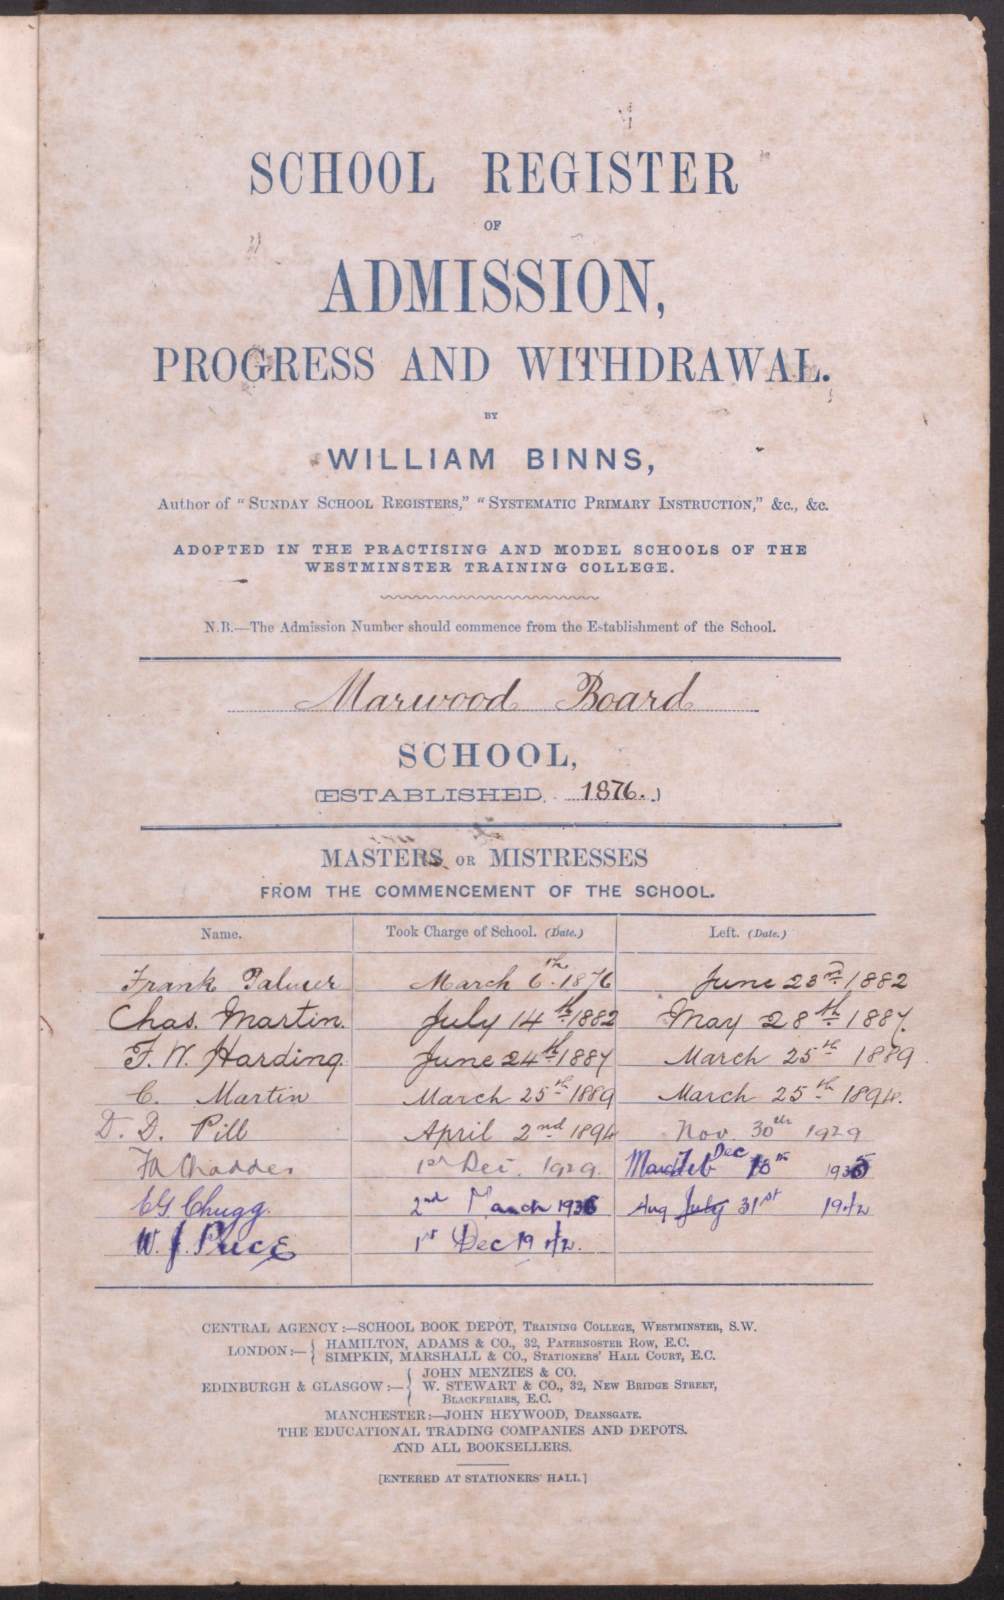 SCHOOL REGISTER
OF
ADMISSION,
PROGRESS AND WITHDRAWAL.
BY
WILLIAM BINNS,
Author of "SUNDAY SCHOOL REGISTERS," "SYSTEMATIC PRIMARY INSTRUCTION," &c., &c.
ADOPTED IN THE PRACTISING AND MODEL SCHOOLS OF THE
WESTMINSTER TRAINING COLLEGE.
N.B.—The Admission Number should commence from the Establishment of the School.
Marwood Board
SCHOOL,
(ESTABLISHED 1876.)
MASTERS OR MISTRESSES
FROM THE COMMENCEMENT OF THE SCHOOL.
Name. Took Charge of School. (Date.) Left. (Date.)
Frank Palmer March 6th 1876 June 23rd 1882
Chas. Martin. July 14th 1882 May 28th 1887.
F. W. Harding. June 24th 1887 March 25th 1889.
C. Martin March 25th 1889 March 25th 1894.
D. D. Pill April 2nd 1894 Nov. 30th 1929
1st Dec. 1929. Dec
CG Chugg. 2nd March 1936 Aug July 31st 1942
W. J. Price 1st Dec 1942.
CENTRAL AGENCY:—SCHOOL BOOK DEPOT, TRAINING COLLEGE, WESTMINSTER, S.W.
LONDON:—{ HAMILTON, ADAMS & CO., 32, PATERNOSTER ROW, E.C.
SIMPKIN, MARSHALL & CO., STATIONERS' HALL COURT, E.C.
EDINBURGH & GLASGOW:—{ JOHN MENZIES & CO.
W. STEWART & CO., 32, NEW BRIDGE STREET,
BLACKFRIARS, E.C.
MANCHESTER:—JOHN HEYWOOD, DEANSGATE.
THE EDUCATIONAL TRADING COMPANIES AND DEPOTS.
AND ALL BOOKSELLERS.
[ENTERED AT STATIONERS' HALL.]